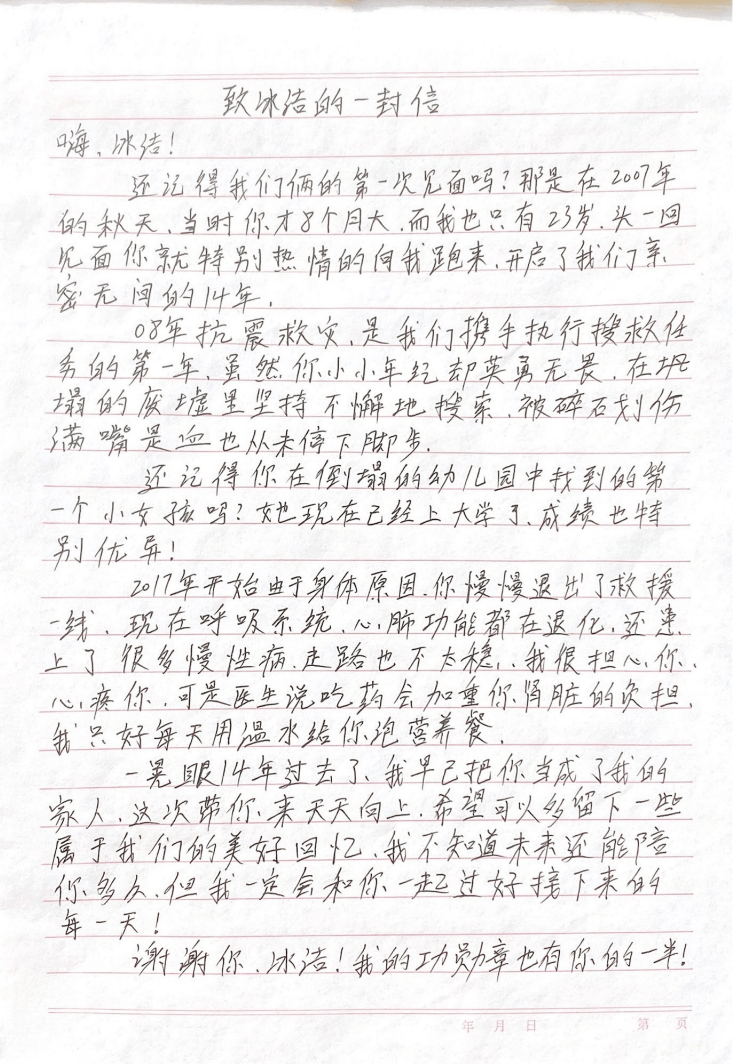 致冰洁的一封信
嗨、冰洁！
还记得我们俩的第一次见面吗？那是在2007年
的秋天、当时你才8个月大、而我也只有23岁、头一回
见面你就特别热情的向我跑来、开启了我们亲
密无间的14年、
08年抗震救灾、是我们携手执行搜救任
务的第一年、虽然你小小年纪却英勇无畏、在坍
塌的废墟里坚持不懈地搜索、被碎石划伤
满嘴是血也从未停下脚步、
还记得你在倒塌的幼儿园中找到的第
一个小女孩吗？她现在已经上大学了、成绩也特
别优异！
2017年开始由于身体原因、你慢慢退出了救援
一线、现在呼吸系统、心肺功能都在退化、还患
上了很多慢性病、走路也不太稳、我很担心你、
心疼你、可是医生说吃药会加重你肾脏的负担、
我只好每天用温水给你泡营养餐、
一晃眼14年过去了、我早已把你当成了我的
家人、这次带你来天天向上、希望可以多留下一些
属于我们的美好回忆、我不知道未来还能陪
你多久、但我一定会和你一起过好接下来的
每一天！
谢谢你、冰洁！我的功勋章也有你的一半！
年 月 日 第 页